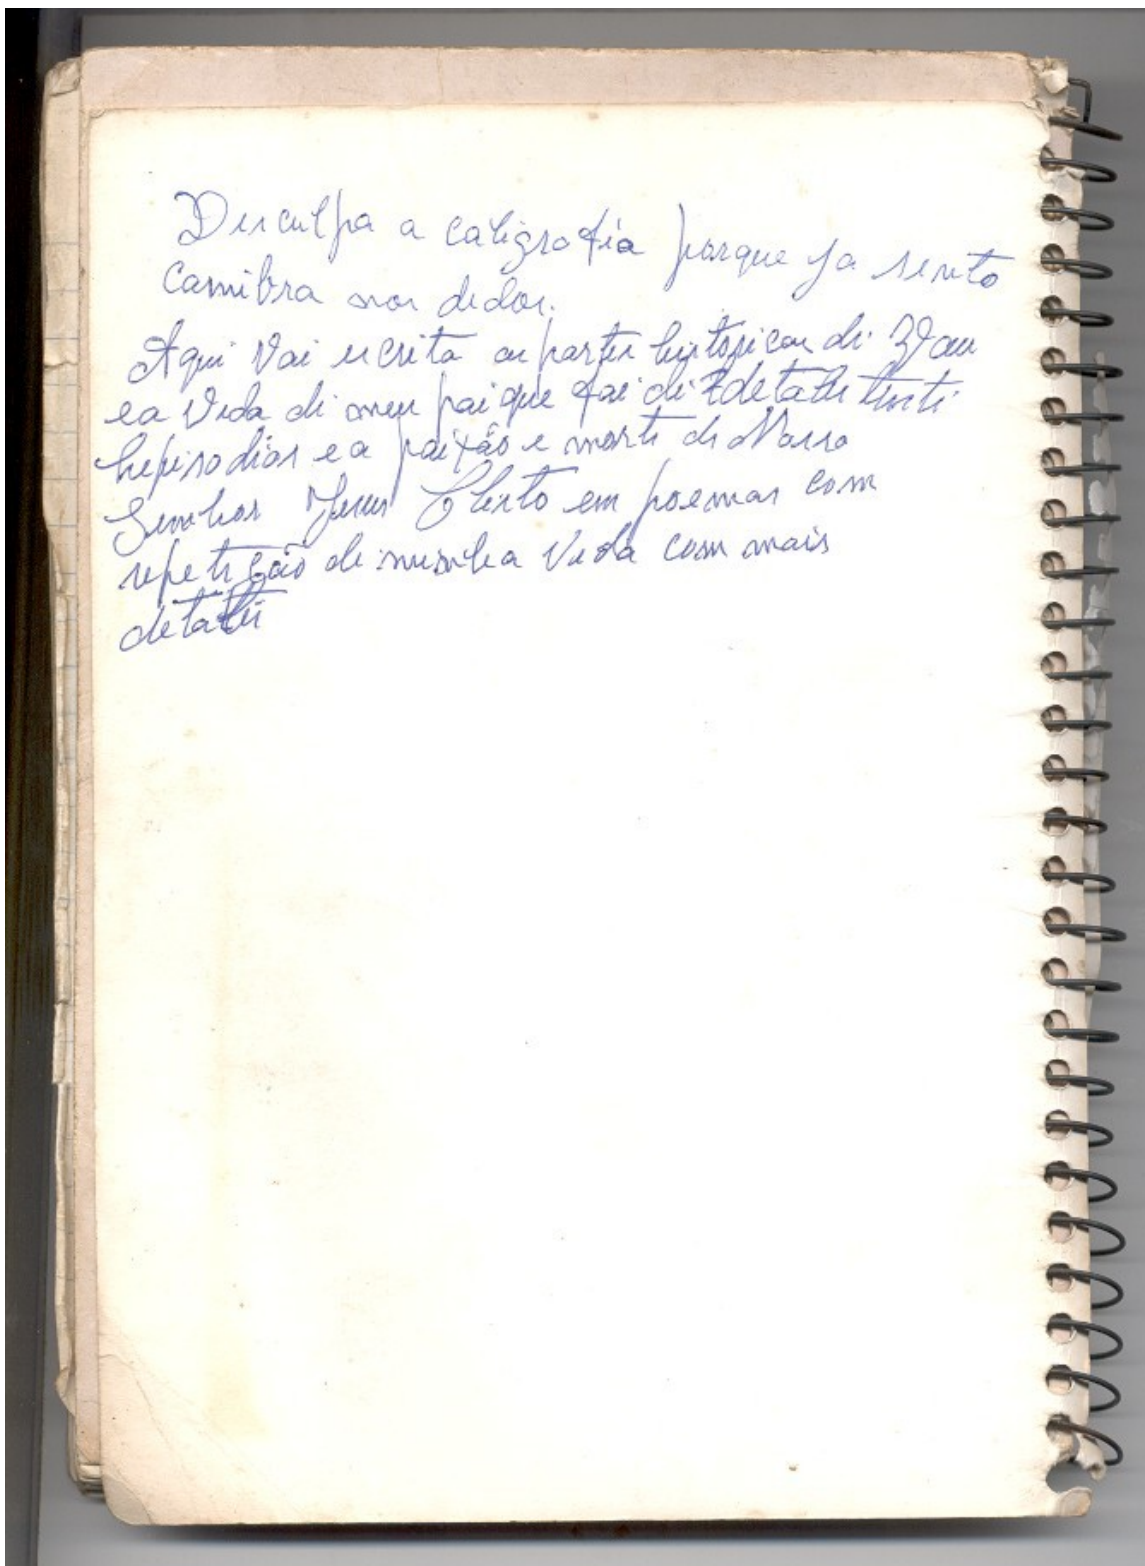 Disculpa a caligrafia porque ja sinto
Camibra nos dedos.
Aqui Vai escrita as partes historicas di
e a Vida di meu pai que foi di
hepisodios e a paixão e morti di Nosso
Senhor Jesus Christo em poemas com
repetição di minha Vida com mais
detalhi